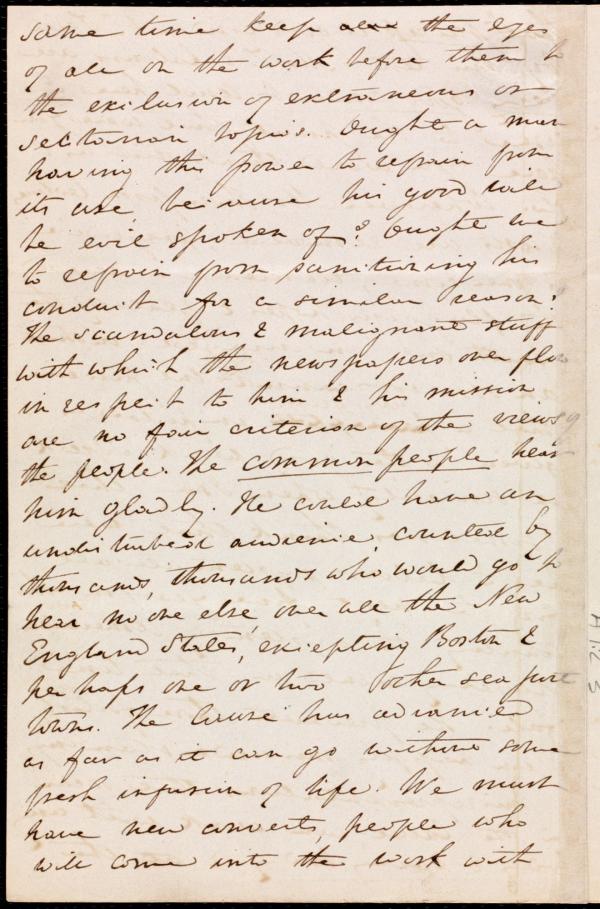 same time keep all the eyes
of all on the work before them to
the exclusion of extraneous or
sectarian topics. Ought a man
having this power to refrain from
its use, because his good will
be evil spoken of? Ought we
to refrain from sanctioning his
conduct for a similar reason?
The scandalous & malignant stuff
with which the newspapers over flow
in respect to him & his mission
are no fair criterion of the views of
the people. The common people hear
him gladly. He could have an
undisturbed audience, counted by
thousands, thousands who would go to
hear no one else, over all the New
England States, excepting Boston &
perhaps one or two other sea port
towns. The Cause has advanced
as far as it can go without some
fresh infusion of life. We must
have new converts, people who
will come into the work with